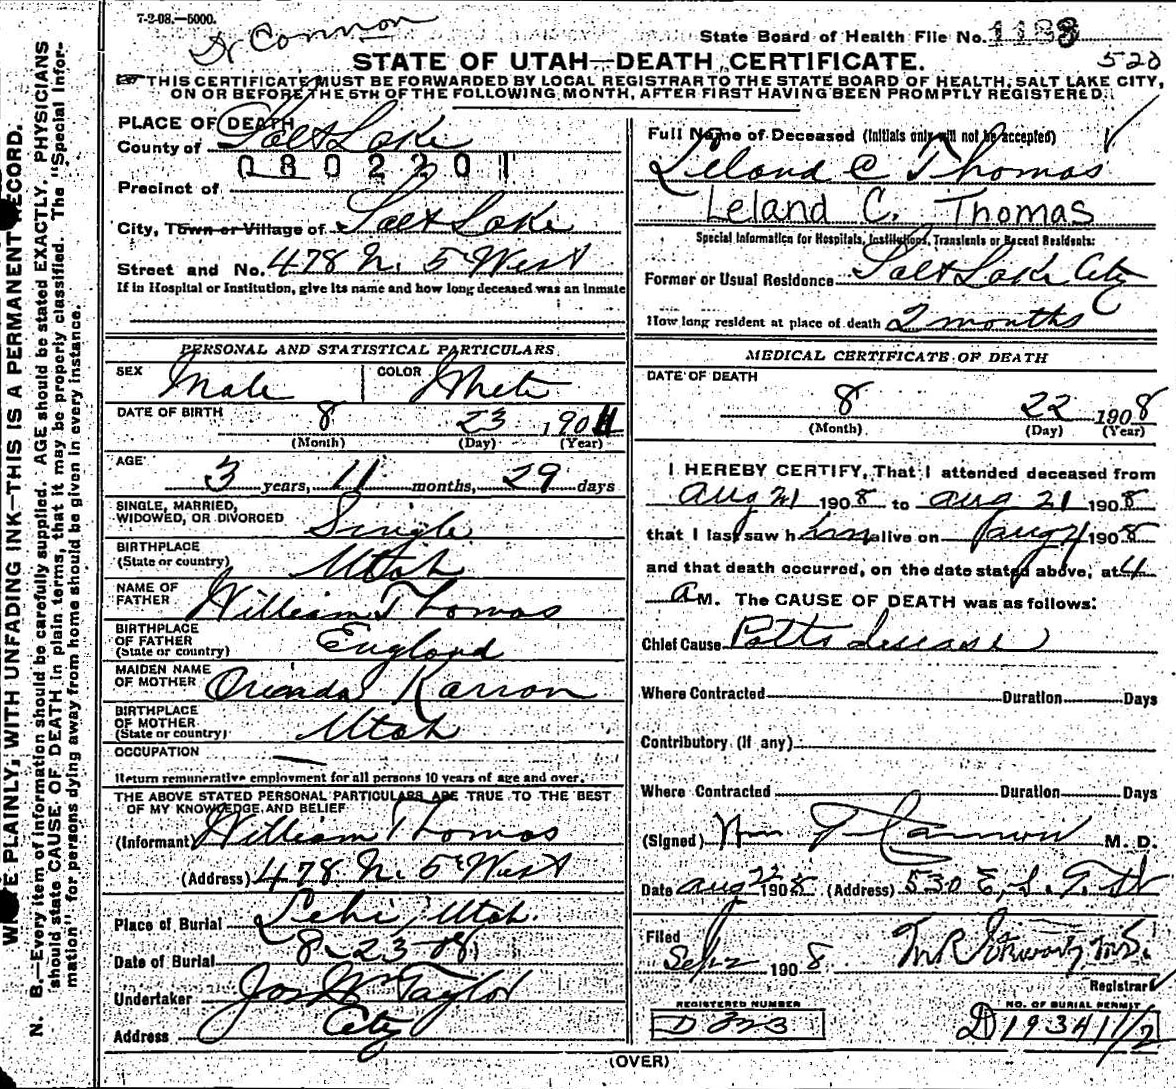 7-2-08.—5000.
Dr Connon
State Board of Health File No. 1188
STATE OF UTAH—DEATH CERTIFICATE.
520
THIS CERTIFICATE MUST BE FORWARDED BY LOCAL REGISTRAR TO THE STATE BOARD OF HEALTH, SALT LAKE CITY,
ON OR BEFORE THE 5TH OF THE FOLLOWING MONTH, AFTER FIRST HAVING BEEN PROMPTLY REGISTERED.
PLACE OF DEATH
County of Salt Lake
0802201
Precinct of
City, Town or Village of Salt Lake
Street and No. 478 N. 5 West
If in Hospital or Institution, give its name and how long deceased was an inmate
PERSONAL AND STATISTICAL PARTICULARS
SEX Male COLOR White
DATE OF BIRTH 8 23 1904
(Month) (Day) (Year)
AGE 3 years, 11 months, 29 days
SINGLE, MARRIED,
WIDOWED, OR DIVORCED Single
BIRTHPLACE
(State or country) Utah
NAME OF
FATHER William Thomas
BIRTHPLACE
OF FATHER
(State or country) England
MAIDEN NAME
OF MOTHER Orinda Karron
BIRTHPLACE
OF MOTHER
(State or country) Utah
OCCUPATION —
Return remunerative employment for all persons 10 years of age and over.
THE ABOVE STATED PERSONAL PARTICULARS ARE TRUE TO THE BEST
OF MY KNOWLEDGE AND BELIEF
(Informant) William Thomas
(Address) 478 N. 5 West
Place of Burial Lehi, Utah.
Date of Burial 8-23-08
Undertaker Jos Wm Taylor
Address City
Full Name of Deceased (Initials only will not be accepted)
Leland C Thomas
Leland C. Thomas
Special Information for Hospitals, Institutions, Transients or Recent Residents:
Former or Usual Residence Salt Lake City
How long resident at place of death 2 months
MEDICAL CERTIFICATE OF DEATH
DATE OF DEATH
8 22 1908
(Month) (Day) (Year)
I HEREBY CERTIFY, That I attended deceased from
Aug 21 1908 to Aug 21 1908
that I last saw him alive on Aug 21 1908
and that death occurred, on the date stated above, at 4
A M. The CAUSE OF DEATH was as follows:
Chief Cause Potts disease
Where Contracted Duration Days
Contributory (if any)
Where Contracted Duration Days
(Signed) Wm T Cannon M. D.
Date Aug 22 1908 (Address) 530 E. S. T. St
Filed
1908
Registrar
REGISTERED NUMBER
D 323
NO. OF BURIAL PERMIT
D 19341 1/2
(OVER)
WRITE PLAINLY, WITH UNFADING INK—THIS IS A PERMANENT RECORD.
N. B.—Every item of information should be carefully supplied. AGE should be stated EXACTLY. PHYSICIANS
should state CAUSE OF DEATH in plain terms, that it may be properly classified. The "Special Infor-
mation" for persons dying away from home should be given in every instance.